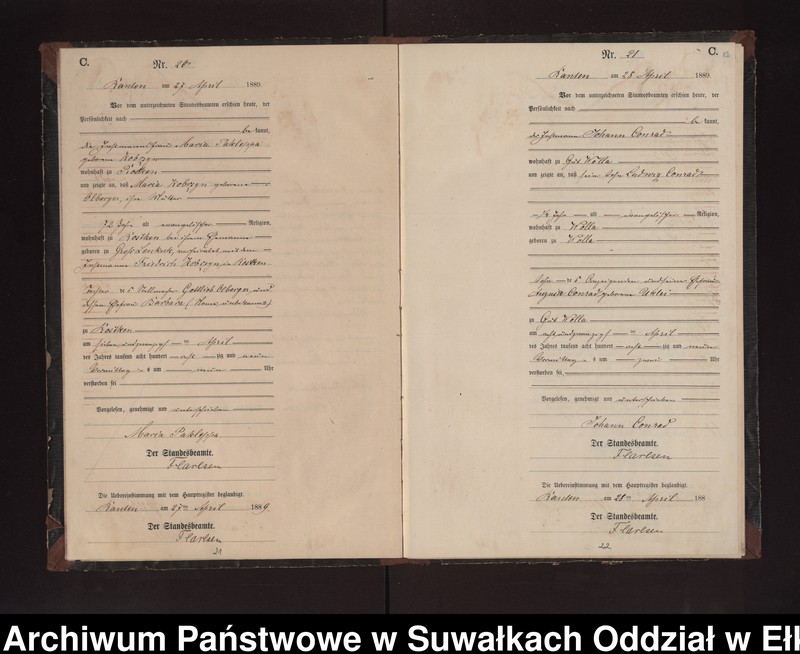 C.
Nr. 20
am 27 April 1889.
Vor dem unterzeichneten Standesbeamten erschien heute, der
Persönlichkeit nach
be kannt,
die Insmannsfrau Maria Pakleppa
geborene Kobzyn
wohnhaft zu
und zeigte an, daß Maria Kobzyn geborene
Olberger, ihre Mutter
72 Jahre alt evangelischer Religion,
wohnhaft zu Rostken bei ihrem Ehemanne
geboren zu Groß verheirathet mit dem
Insmanne Friedrich Kobzyn in Rostken
Tochter des Gottlieb Olberger und
dessen Ehefrau Barbara (Name unbekannt)
zu Rostken
am sieben und zwanzigsten April
des Jahres tausend acht hundert acht zig und neun
Vormittags um neun Uhr
verstorben sei
Vorgelesen, genehmigt und unterschrieben
Maria Pakleppa
Der Standesbeamte.
Die Uebereinstimmung mit dem Hauptregister beglaubigt.
am 27ten April 1889.
Der Standesbeamte.
21
Nr. 21
C.
am 28 April 1889.
Vor dem unterzeichneten Standesbeamten erschien heute, der
Persönlichkeit nach
be kannt,
der Insmann Johann Conrad
wohnhaft zu Gut Wolla
und zeigte an, daß sein Sohn Ludwig Conrad
Jahr alt evangelischer Religion,
wohnhaft zu Wolla
geboren zu Wolla
Sohn des Anzeigenden und seiner Ehefrau
Auguste Conrad geborene
zu Gut Wolla
am acht und zwanzigsten April
des Jahres tausend acht hundert acht zig und neun
Vormittags um zwei Uhr
verstorben sei,
Vorgelesen, genehmigt und unterschrieben
Johann Conrad
Der Standesbeamte.
Die Uebereinstimmung mit dem Hauptregister beglaubigt.
am 28ten April 188
Der Standesbeamte.
22
Archiwum Państwowe w Suwałkach Oddział w Ełk